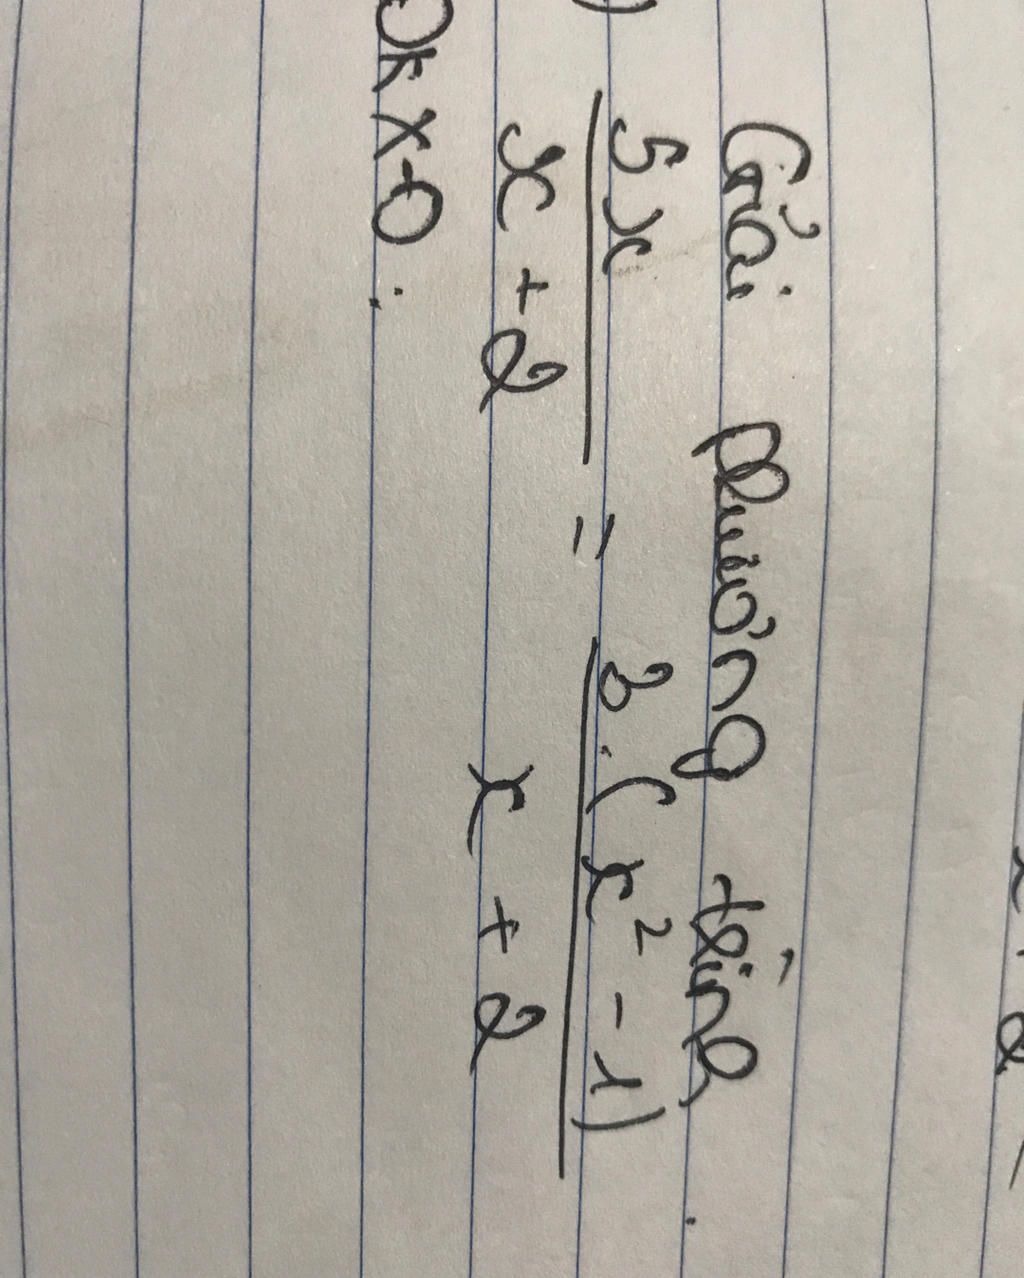 Giải phương trình.
) 5x / x + 2 = 3.(x² - 1) / x + 2
Đk x≠0 :